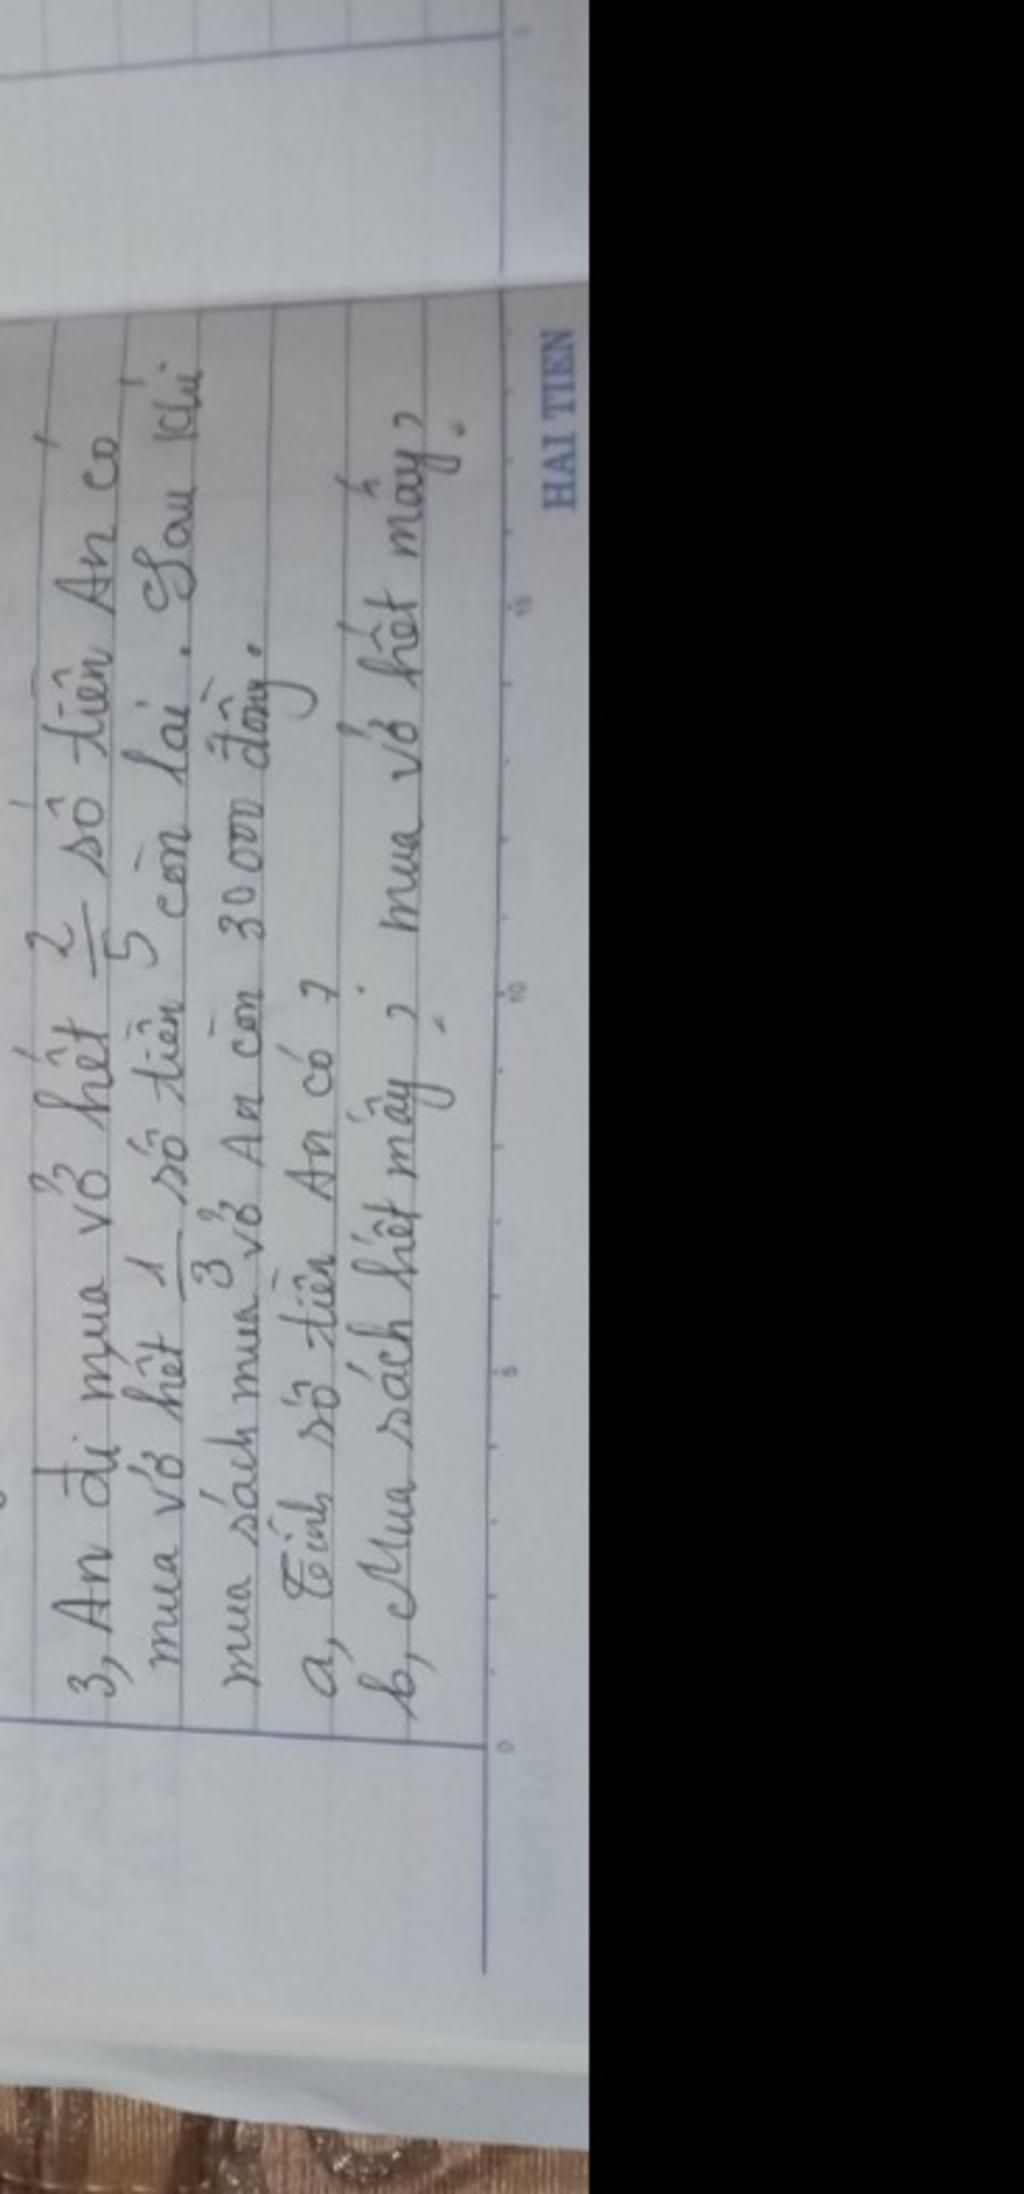 3, An đi mua vở hết 2/5 số tiền An có
mua vở hết 1/3 số tiền còn lại. Sau khi
mua sách mua vở An còn 30000 đồng.
a, Tính số tiền An có ?
b, Mua sách hết mấy ? mua vở hết mấy ?
0 5 10 15
HAI TIEN